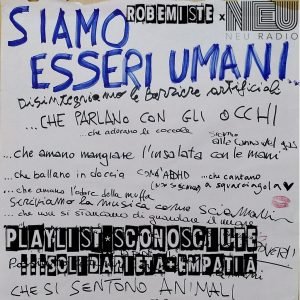 ROBEMISTE x NEU
NEU RADIO
SIAMO
ESSERI UMANI
Disintegriamo le barriere artificiali
...CHE PARLANO CON GLI OCCHI
...che adorano le coccole
...che amano mangiare l'insalata con le mani
...che ballano in doccia COM'ADHD ...che cantano
a squarciagola
...che amano l'odore della muffa
scriviamo la musica come sciamani
...che non si stancano di guardare il mare
PLAYLIST*SCONOSCIUTE
***SOLIDARIETA*EMPATIA
CHE SI SENTONO ANIMALI